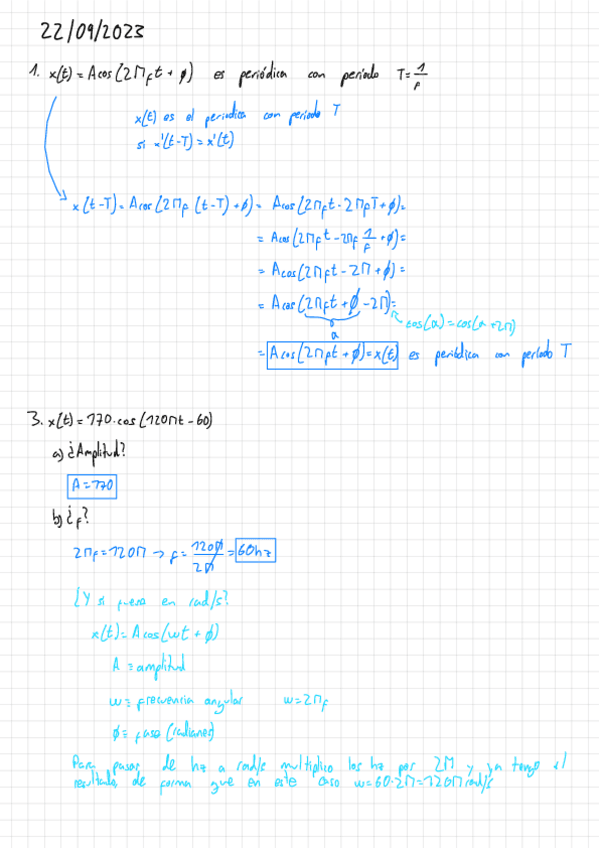 22/09/2023
1. x(t) = A cos(2Πft + φ) es periódica con período T = 1/f
x(t) es el periodica con periodo T
si x'(t-T) = x'(t)
x(t-T) = A cos(2Πf (t-T) + φ) = A cos(2Πft - 2ΠfT + φ) =
= A cos(2Πft - 2Πf 1/f + φ) =
= A cos(2Πft - 2Π + φ) =
= A cos(2Πft + φ - 2Π) =
cos(a) = cos(a + 2Π)
a
= A cos(2Πft + φ) = x(t) es periódica con período T
3. x(t) = 170·cos(120Πt - 60)
a) ¿Amplitud?
A = 170
b) ¿f?
2Πf = 120Π → f = 120Π/2Π = 60hz
¿Y si fuera en rad/s?
x(t) = A cos(wt + φ)
A = amplitud
w = frecuencia angular w = 2Πf
φ = fase (radianes)
Para pasar de hz a rad/s multiplico los hz por 2Π y ya tengo el
resultado, de forma que en este caso w = 60·2Π = 120Π rad/s